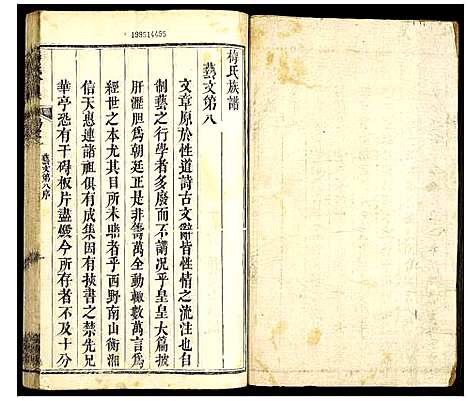 199514495
梅氏族譜
藝文第八
文章原於性道詩古文辭皆性情之流注也自
制藝之行學者多廢而不講况乎皇皇大篇披
肝瀝膽為朝廷正是非籌萬全動輒數萬言為
經世之本尤其目所未睹者乎西野南山衡湘
信天惠連諸祖俱有成集因有挾書之禁先兄
華亭恐有干碍板片盡燬今所存者不及十分
藝文第八序